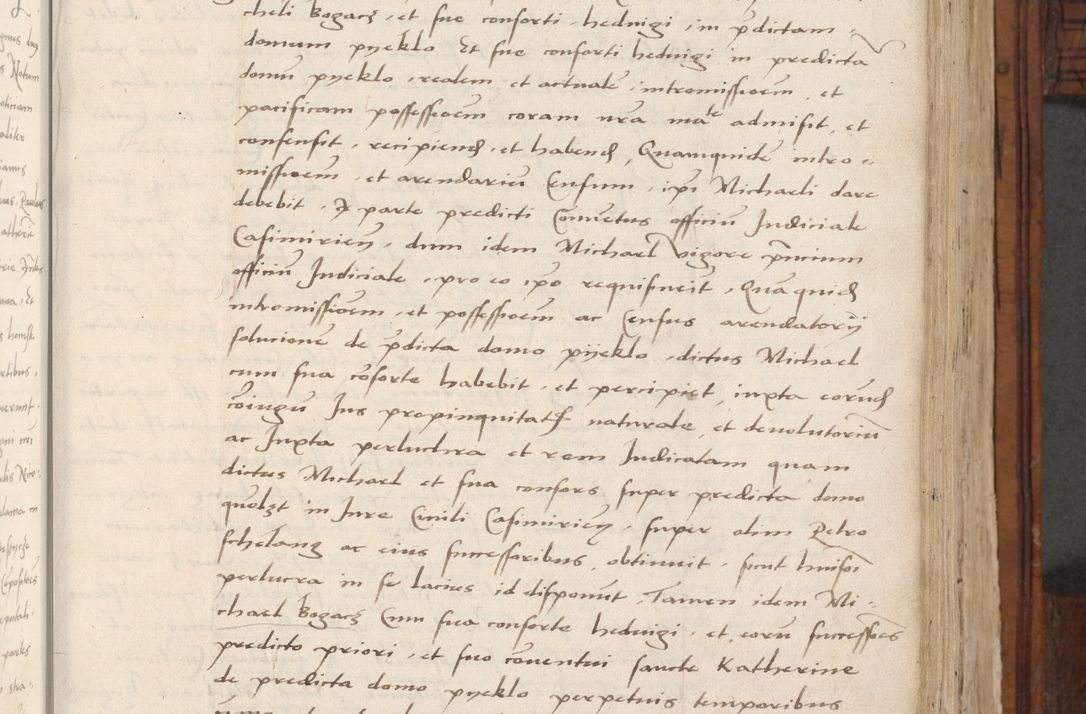 cheli Bogacz, et sue consorti, hedvigi, in pdictam
domum pyeklo Et sue consorti hedvigi in predicta
domu pyeklo, realem et actuale, intromissioem, et
pacificam possessioem coram nra mate admisit, et
consensit, recipiend, et habend, Quamquide intro-
missioem, et arendariu Censum, ipi Michaeli dare
debebit, parte predicti Convetus officiu Judiciale
Casimirien, dum idem Michael vigore pncium
officiu Judiciale, pro eo ipo requisiverit, Quaquid
intromissioem, et possessioem ac Census arendatorij
solucione de pdicta domo pyeklo, dictus Michael
cum sua cosorte habebit, et percipiet, iuxta eorund
coiugu Jus propinquitatis naturale, et devolutoriu
ac Juxta perlucra et rem Judicatam quam
dictus Michael et sua consors super predicta domo
in Jure Civili Casimirien, super olim Petro
schelang ac eius successoribus, obtinuit, sicut huiusoi
perlucra in se lacius id disponut, Tamen idem Mi-
chael Bogacz Cum sua consorte hedvigi, et eoru successores
predicto priori, et suo coventui sancte Katherine
de predicta domo pyeklo perpetuis temporibus